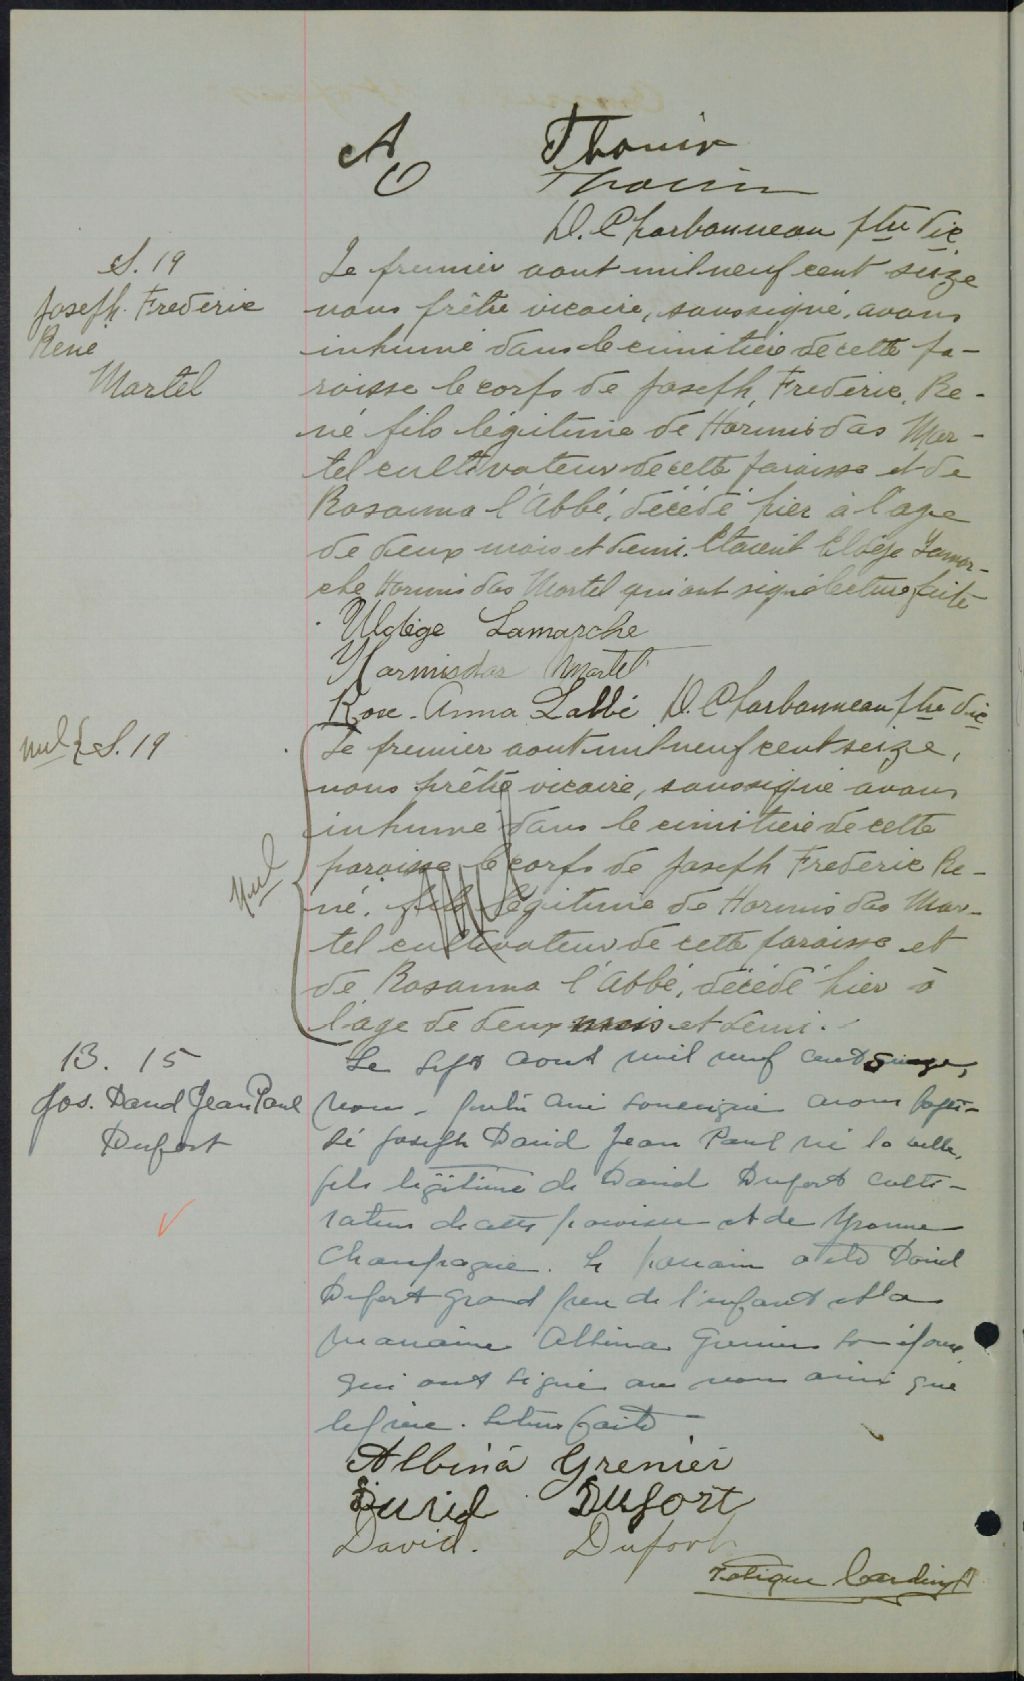 A Thouin
O Thouin
D. Charbonneau ptre vic.
S. 19
Joseph Frederic
René
Martel
Le premier aout mil neuf cent seize
nous prêtre vicaire, soussigné, avons
inhumé dans le cimitiere de cette pa-
roisse le corps de Joseph, Frederic, Re-
né fils légitime de Hormisdas Mar-
tel cultivateur de cette paroisse et de
Rosanna l'Abbé, décédé hier à l'age
de deux mois et demi. Etaient Lamar-
che Hormisdas Martel qui ont signé lecture faite
Uldège Lamarche
Hormisdas Martel
Rose-Anna Labbé D. Charbonneau ptre vic
nul { S. 19
nul
Le premier aout mil neuf cent seize,
nous prêtre vicaire, soussigné avons
inhumé dans le cimitiere de cette
paroisse le corps de Joseph Frederic Re-
né, fils légitime de Hormisdas Mar-
tel cultivateur de cette paroisse et
de Rosanna l'Abbé, décédé hier à
l'age de deux mois et demi.
Nul
B. 15
Jos. David Jean Paul
Dufort
Le sept aout mil neuf cent seize,
nous, prêtre curé soussigné avons bapti-
sé Joseph David Jean Paul né la veille,
fils légitime de David Dufort culti-
vateur de cette paroisse et de Yvonne
Champagne. Le parrain a été David
Dufort grand père de l'enfant et la
marraine Albina Grenier son épouse,
qui ont signé avec nous ainsi que
le père. Lecture faite
Albina Grenier
David Dufort
David. Dufort